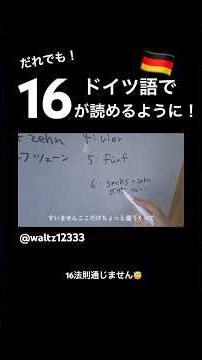 だれでも！
ドイツ語で
16が読めるように！
zehn 4:vier
ツェーン 5 fünf
6:sechs+zehn
すいませんここだけちょっと違うくって
@waltz12333
16法則通じません😇